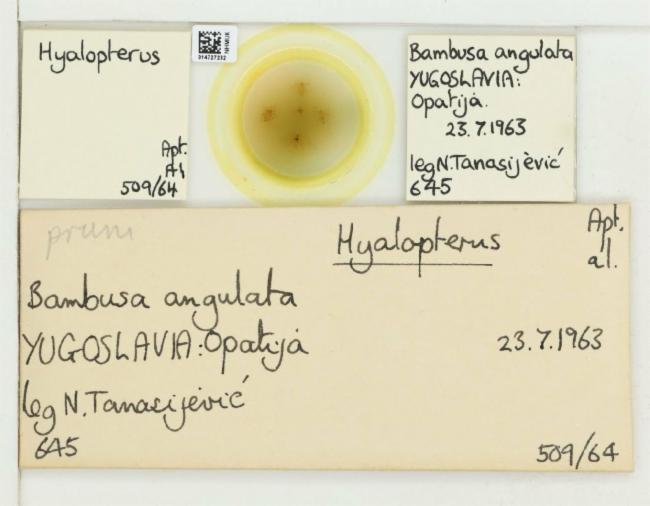 Hyalopterus
Apt.
Al
509/64
NHMUK
014727232
Bambusa angulata
YUGOSLAVIA:
Opatija.
23.7.1963
leg N.Tanasijèvić
645
pruni
Hyalopterus
Apt.
al.
Bambusa angulata
YUGOSLAVIA: Opatija
23.7.1963
leg N.Tanasijèvić
645
509/64